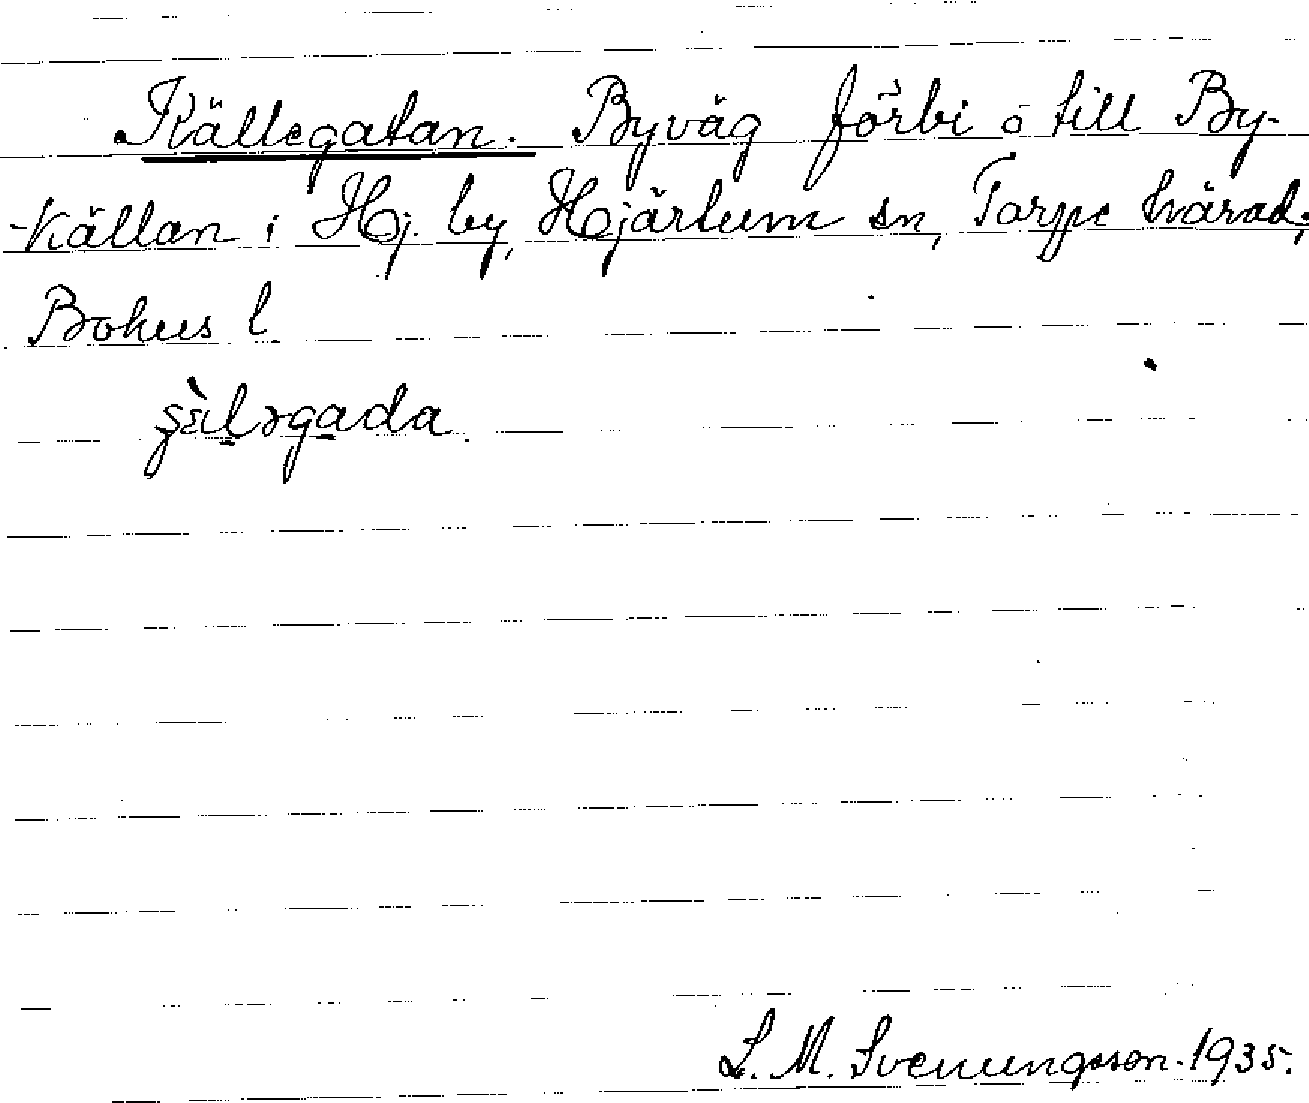 Källegatan. Byväg förbi o till By-
-källan i Hj. by, Hjärtum sn, Torpe härad,
Bohus l.
L. M. Svenungsson. 1935.